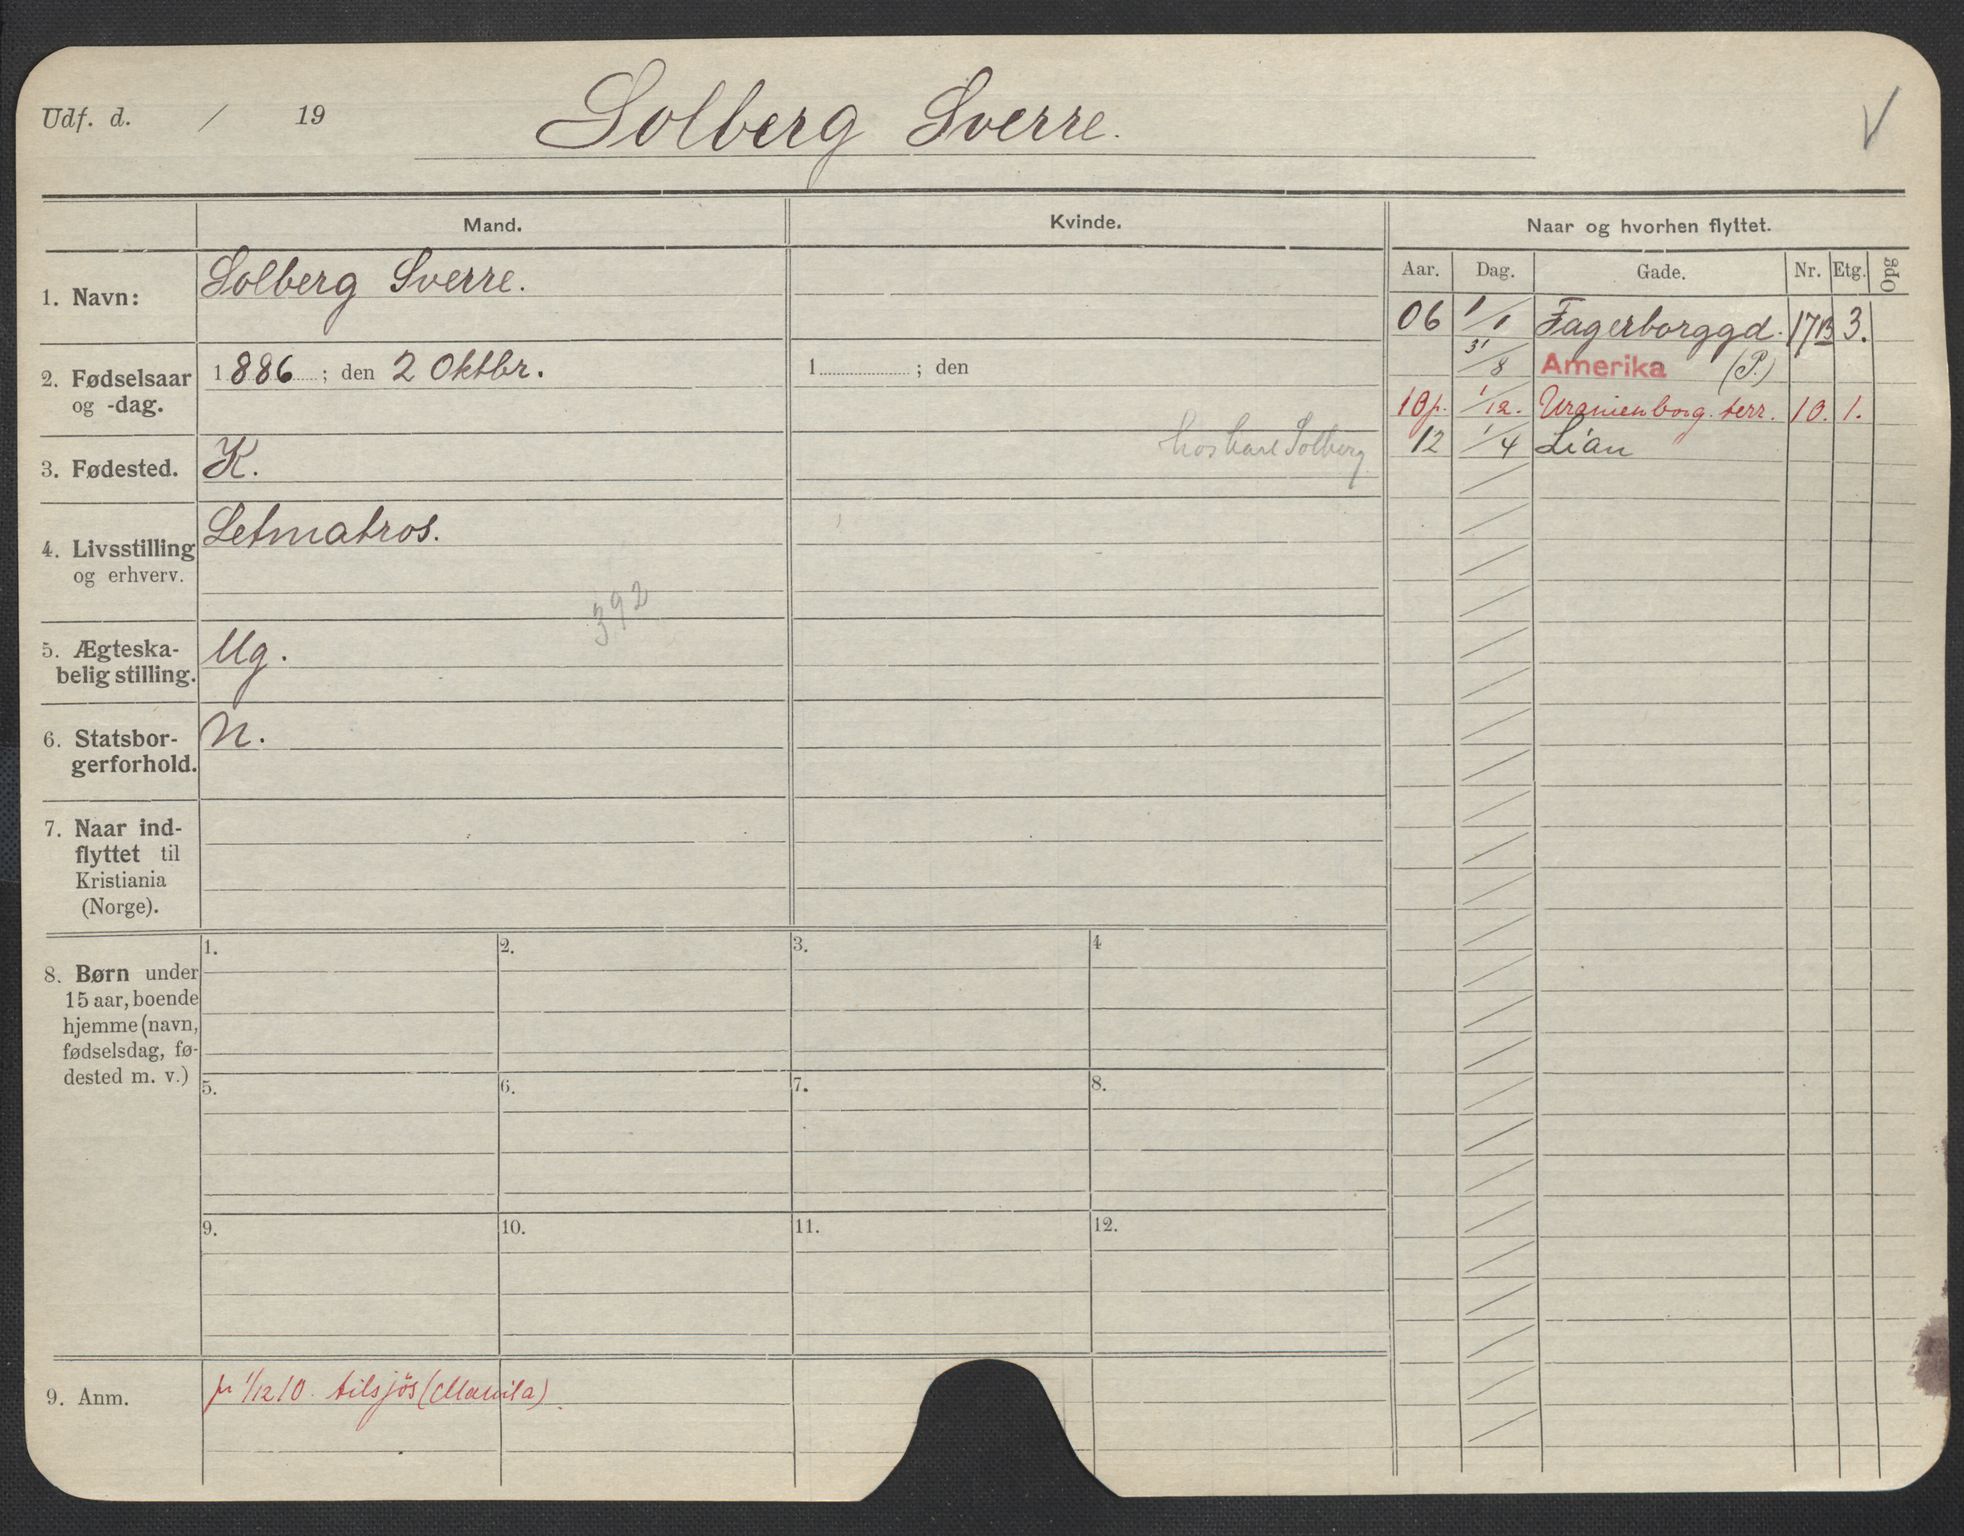 Udf. d. / 19 Solberg Sverre. V
Mand. Kvinde. Naar og hvorhen flyttet.
Aar. Dag. Gade. Nr. Etg. Opg
1. Navn: Solberg Sverre.
06 1/1 Fagerborggd. 17B 3.
31/8 Amerika (P.)
10 p. 1/12. Uranienborg. terr. 10. 1.
12 1/4 Lian
2. Fødselsaar
og -dag.
1886 ; den 2 Oktbr.
1 ; den
3. Fødested. K.
hos Karl Solberg
4. Livsstilling
og erhverv.
Letmatros.
392
5. Ægteska-
belig stilling.
Ug.
6. Statsbor-
gerforhold.
N.
7. Naar ind-
flyttet til
Kristiania
(Norge).
8. Børn under
15 aar, boende
hjemme (navn,
fødselsdag, fø-
dested m. v.)
1. 2. 3. 4
5. 6. 7. 8.
9. 10. 11. 12.
9. Anm. pr 1/12 10. tilsjös (Manila).